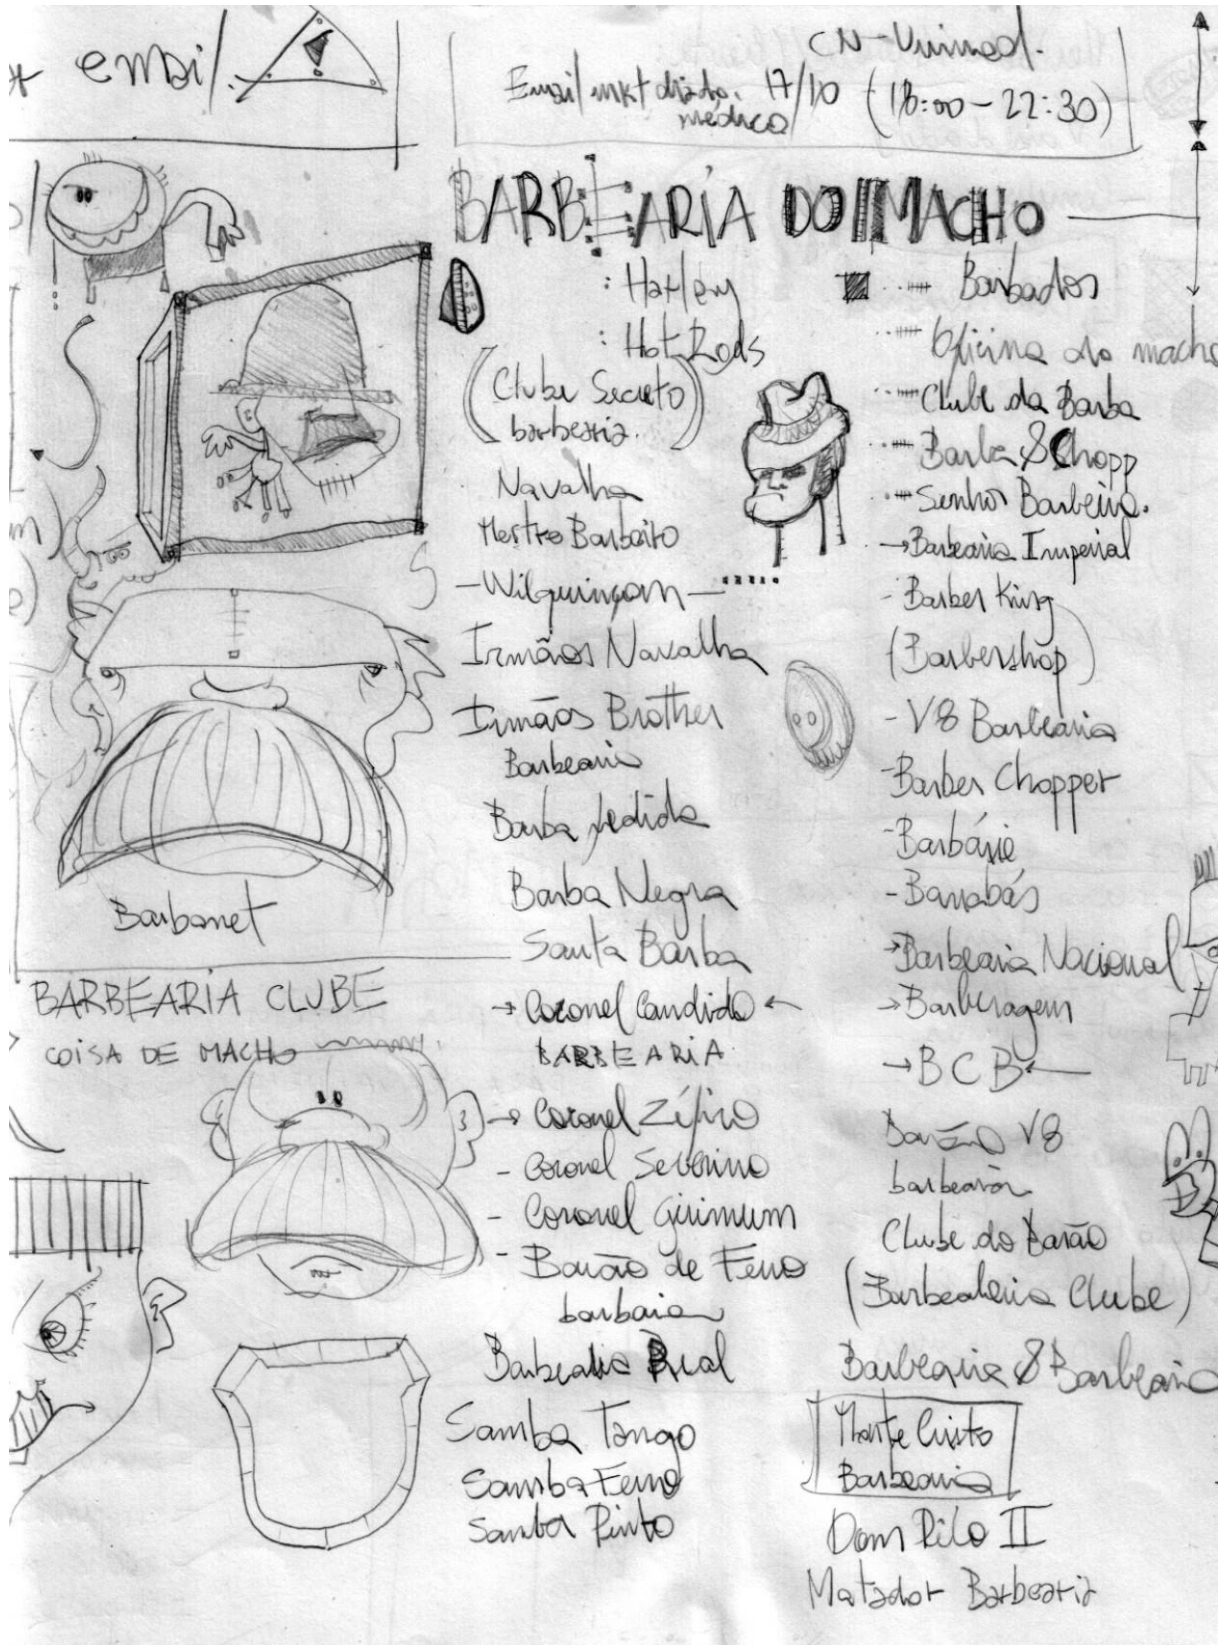 email.
CN-Unimed.
Email mkt diado. 17/10 (18:00-22:30)
médico
BARBEARIA DO MACHO
: Harley
: Hot Rods
(Clube Secreto)
barbearia.
Navalha
Mestre Barbeiro
-Wilquinçom-
Irmãos Navalha
Irmãos Brother
Barbearia
Barba fedida
Barba Negra
Santa Barba
→ Coronel Candido ←
BARBEARIA
→ Coronel Zéfiro
- Coronel Severino
- Coronel Girimum
- Barão de Ferro
barbaria
Barbearia Real
Samba Tango
Samba Ferro
Samba Pinto
Barbados
Oficina do macho
Clube da Barba
Barba & Chopp
Senhor Barbeiro.
→Barbearia Imperial
- Barber King
(Barbershop)
- V8 Barbearia
-Barber Chopper
-Barbárie
-Barrabás
→Barbearia Nacional
→Barberagem
→BCB←
Barão V8
barbearia
Clube do Barão
(Barbealeria Clube)
Barbearia & Barbearia
Monte Cristo
Barbearia
Dom Pilo II
Matador Barbearia
Barbanet
BARBEARIA CLUBE
COISA DE MACHO